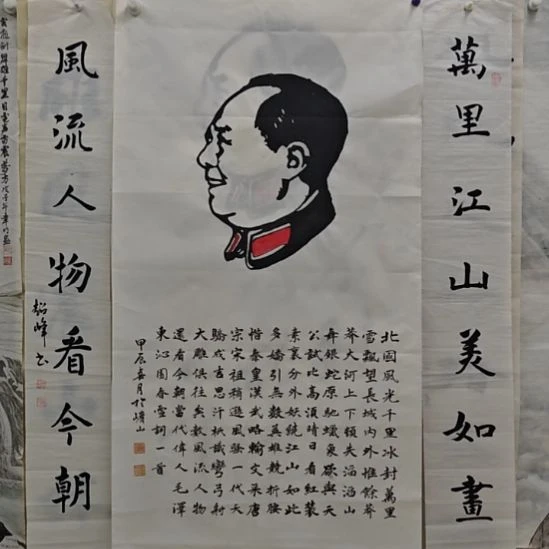 萬里江山美如畫
北國風光千里冰封萬里
雪飄望長城內外惟餘莽
莽大河上下頓失滔滔山
舞銀蛇原馳蠟象欲與天
公試比高須晴日看紅裝
素裹分外妖繞江山如此
多嬌引無數英雄競折腰
惜秦皇漢武略輸文采唐
宗宋祖稍遜風騷一代天
驕成吉思汗祇識彎弓射
大雕俱往矣數風流人物
還看今朝當代偉人毛澤
東沁園春雪詞一首
甲辰春月於嶧山
風流人物看今朝
峰书